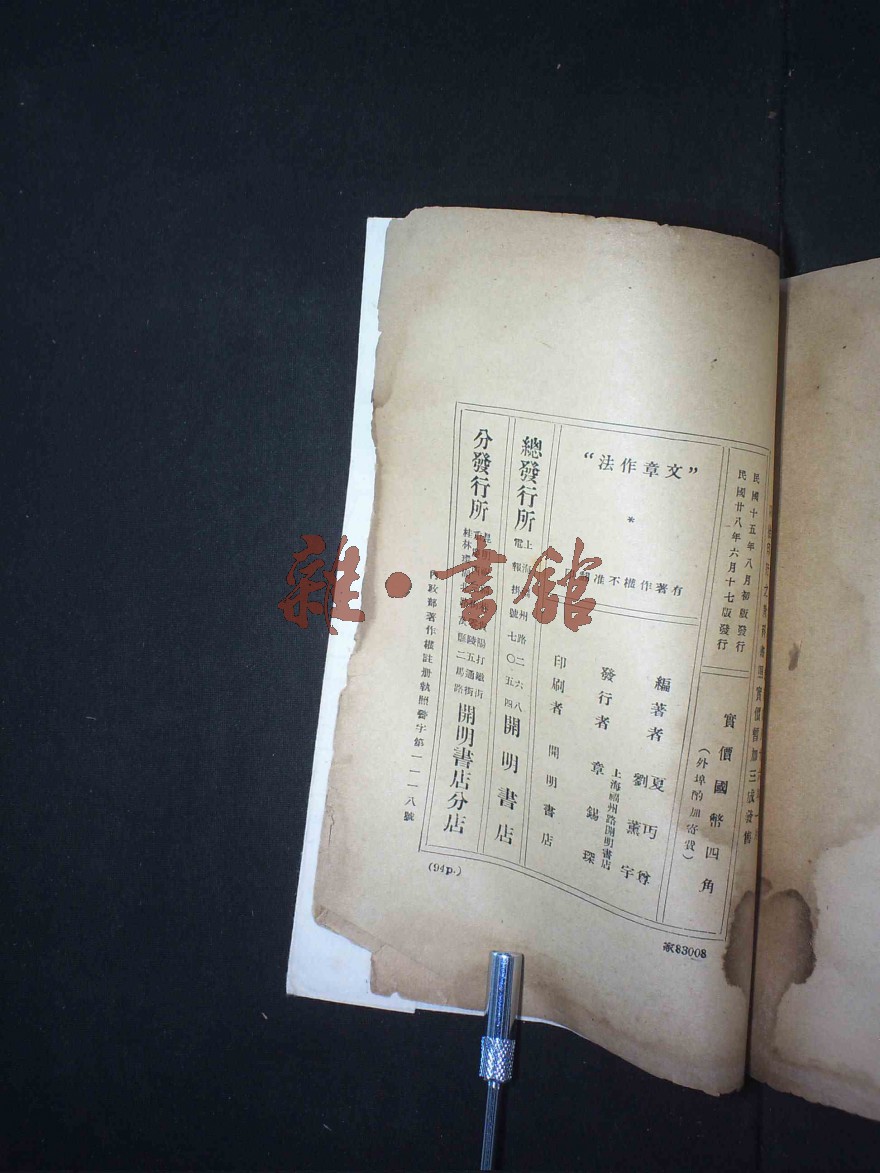 民國十五年八月初版發行
民國廿八年六月十七版發行
實價國幣四角
（外埠酌加寄費）
實價暫加三成發售
“文章作法”
*
有著作權不准
編著者 夏丏尊
劉薰宇
發行者 章錫琛
上海福州路開明書店
印刷者 開明書店
總發行所 開明書店
上海 州路二六八
電報掛號七〇五四
分發行所 開明書店分店
桂林環
內政部著作權註冊執照警字第一一一八號
(94p.)
家83008
雜·書館